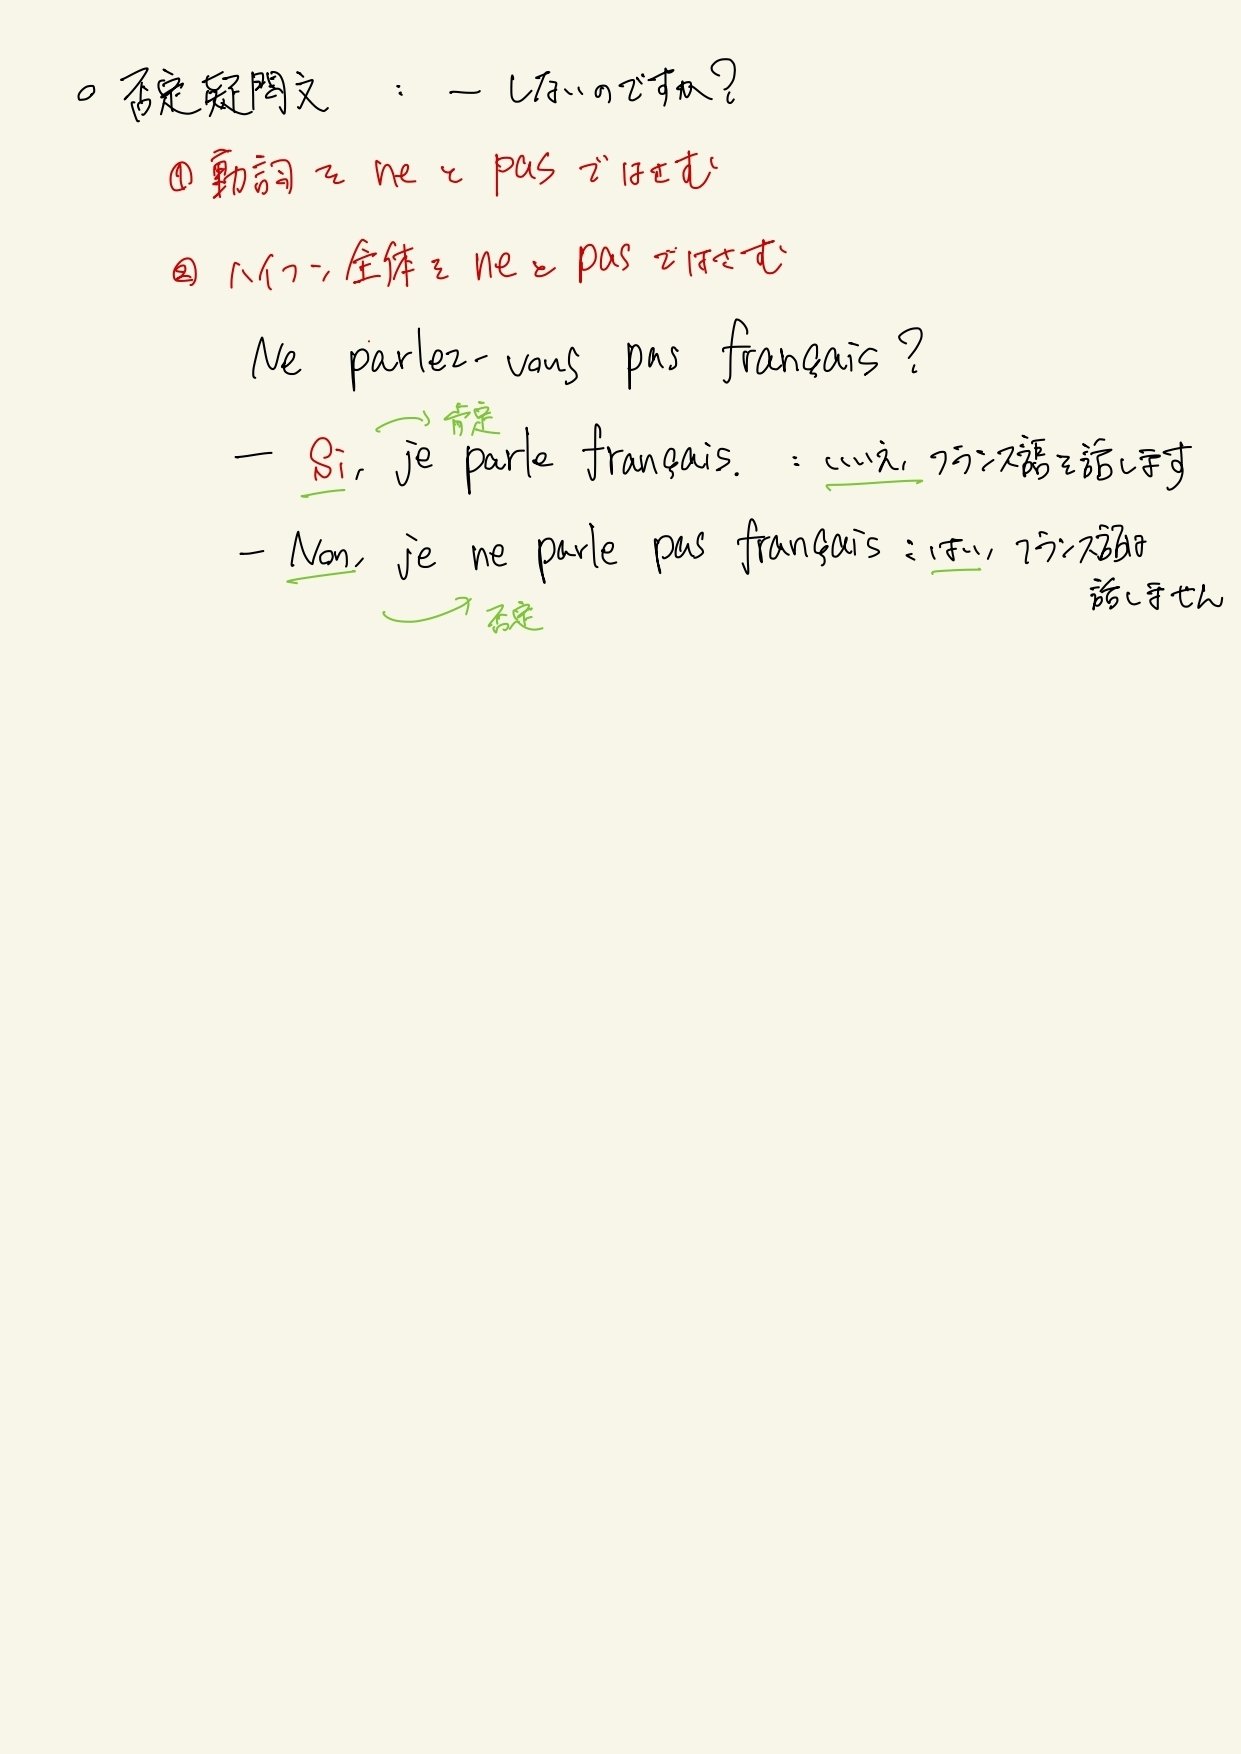 ○ 否定疑問文 : ― しないのですか?
① 動詞を ne と pas ではさむ
② ハイフン全体を ne と pas ではさむ
Ne parlez-vous pas français?
→ 肯定
― Si, je parle français. : いいえ, フランス語を話します
― Non, je ne parle pas français : はい, フランス語は
話しません
→ 否定